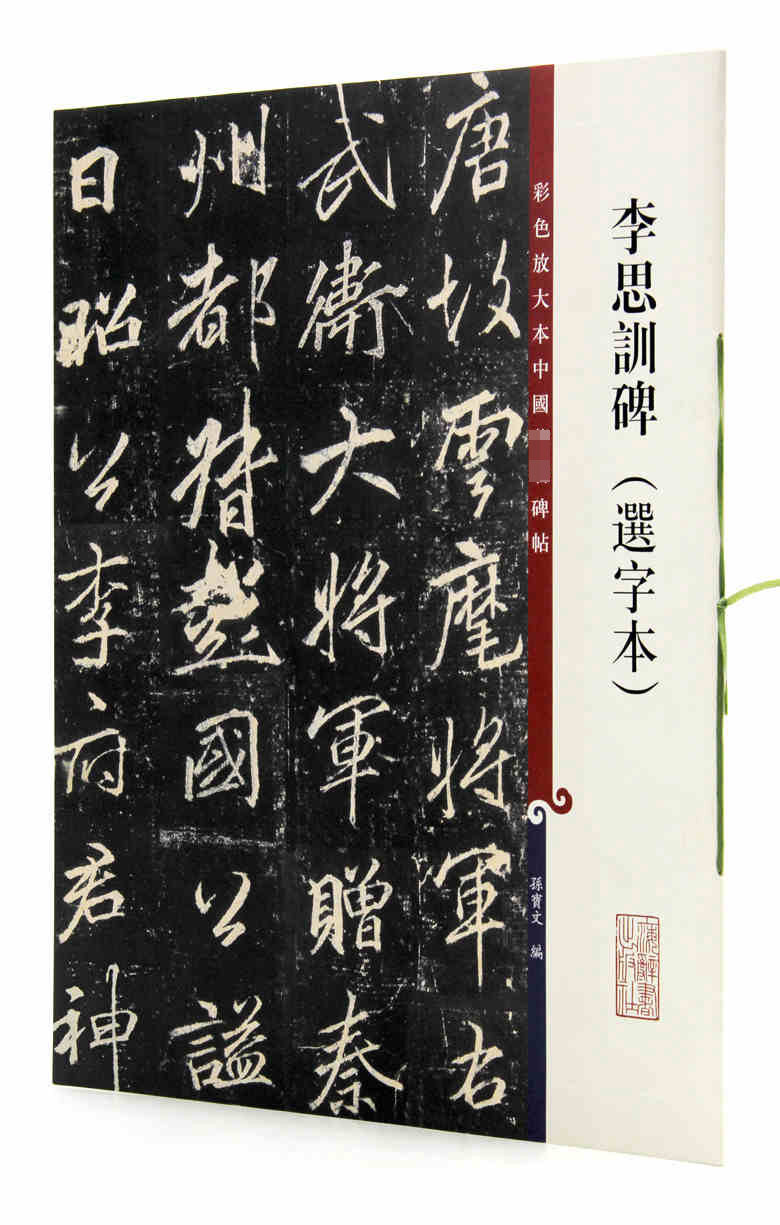 李思訓碑（選字本）
海辭書
出版社
彩色放大本中國 碑帖
孫寶文 編
唐故雲麾將軍右
武衛大將軍贈秦
州都督彭國公謚
曰昭公李府君神